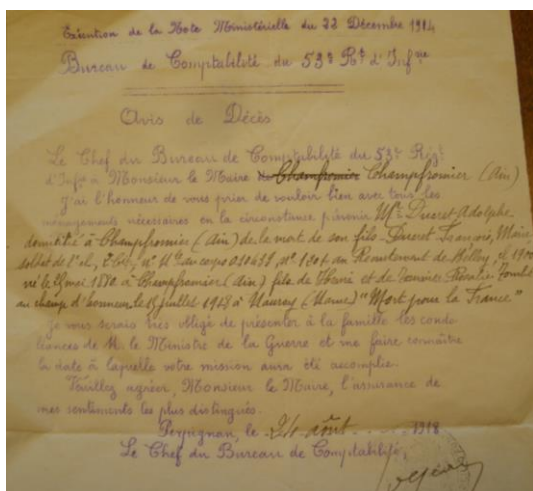 Exécution de la Note Ministérielle du 22 Décembre 1914
Bureau de Comptabilité du 53e Rt d'Infrie
Avis de Décès
Le Chef du Bureau de Comptabilité du 53e Régt
d'Infie à Monsieur le Maire de Champfromier Champfromier (Ain)
J'ai l'honneur de vous prier de vouloir bien avec tous les
ménagements nécessaires en la circonstance prévenir Mr Ducret Adolphe
domicilié à Champfromier (Ain) de la mort de son fils Ducret François, Marie
soldat de 1 cl, au corps 010477, no 1804 au Recrutement de Belley, cl 1900
né le mai 1880 à Champfromier (Ain) fils de et de Rosalie Tombé
au champ d'honneur le 15 juillet 1918 à (Marne) "Mort pour la France"
Je vous serais très obligé de présenter à la famille les condo-
léances de M. le Ministre de la Guerre et me faire connaître
la date à laquelle votre mission aura été accomplie.
Veuillez agréer, Monsieur le Maire, l'assurance de
mes sentiments les plus distingués.
Perpignan, le 24 août 1918
Le Chef du Bureau de Comptabilité,